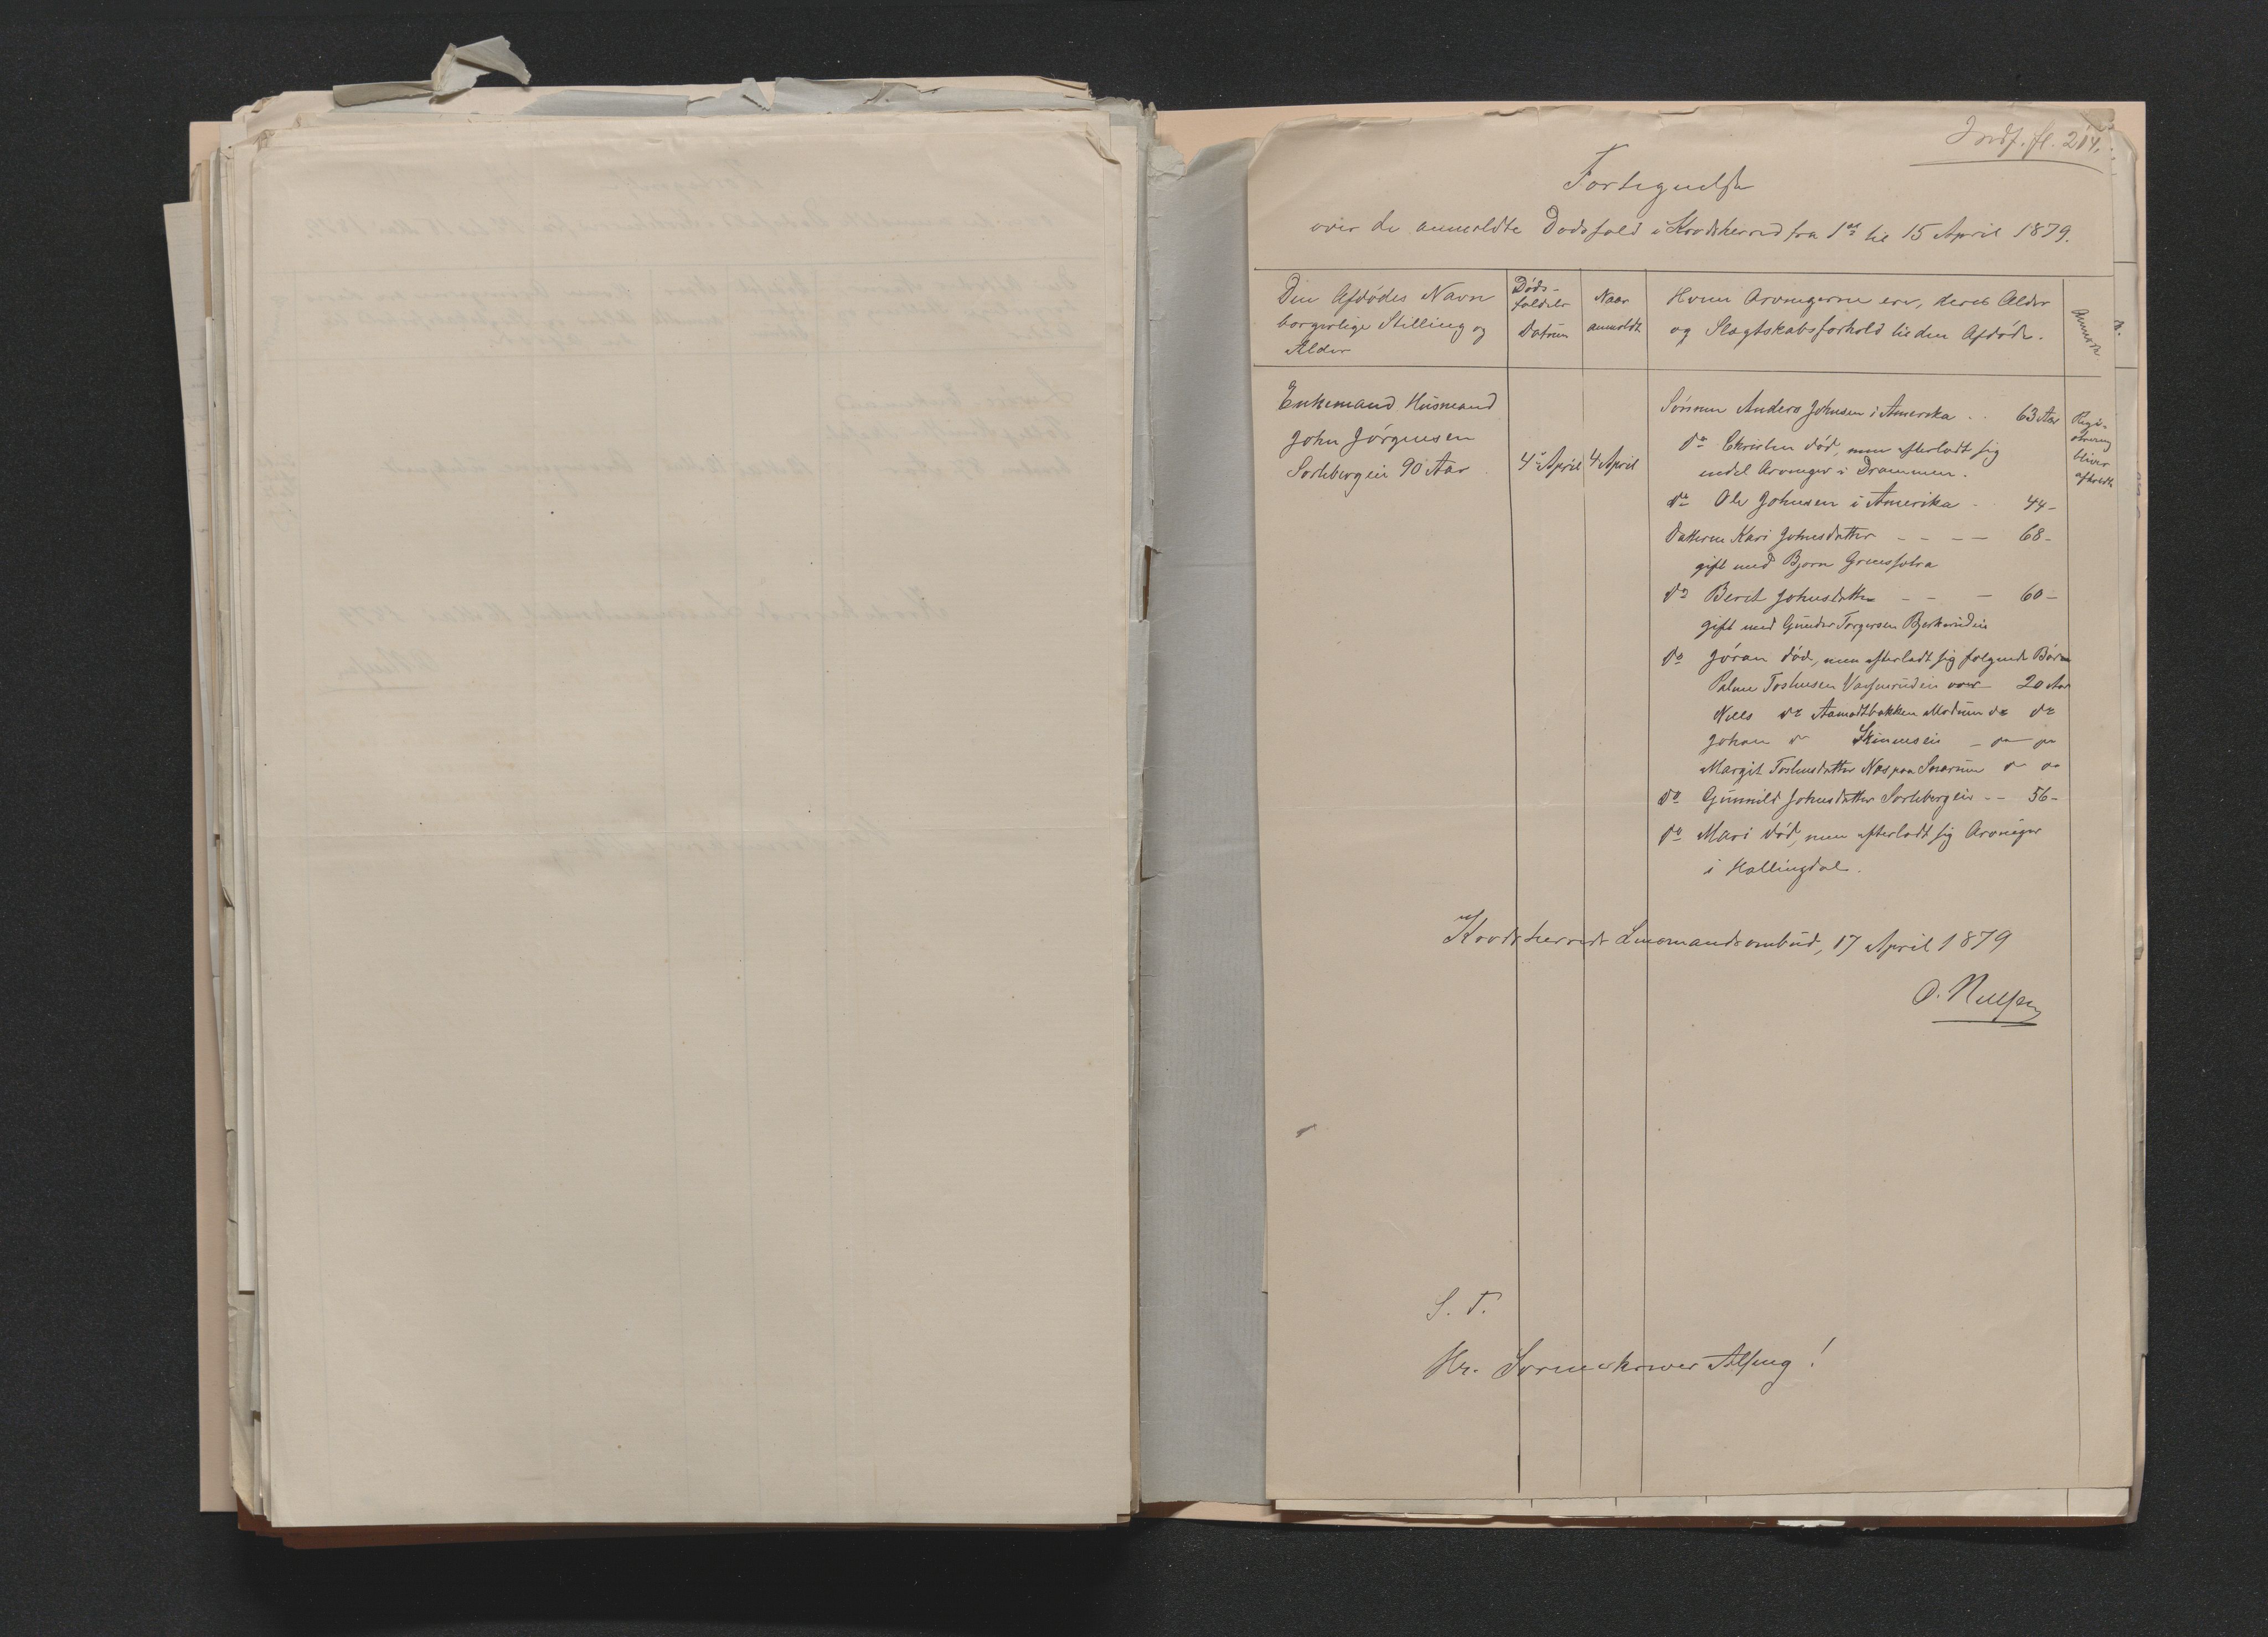 Indf. fl. 214.
Fortegnelse
over de anmeldte Dødsfald i Krødsherred fra 1ste til 15 April 1879.
Den Afdødes Navn
borgerlige Stilling og
Alder
Døds-
faldets
Datum
Naar
anmeldt
Hvem Arvingerne ere, deres Alder
og Slægtskabsforhold til den Afdøde.
Anmerk
Enkemand Husmand
John Jörgensen
Sorlibergeie 90 Aar
4de April
4 April
Sönnen Anders Johnsen i Amerika 63 Aar
do Christen död, men efterladt sig
endel Arvinger i Drammen.
do Ole Johnsen i Amerika 44 -
Datteren Kari Johnsdatter - - - - 68 -
gift med Bjørn
do Berit Johnsdatter - - - 60 -
gift med Gunder Torgersen Bjerkerudeie
do Jöran död, men efterladt sig følgende Börn
Palme Tostensen over 20 Aar
Nills do Aamodtbakken Modum do do
Johan do Skinneseie - do do
Margit Tostensdatter Næs paa Snarum do do
do Gunnild Johnsdatter Sorlibergeie - - 56 -
do Mari död, men efterladt sig Arvinger
i Hallingdal.
Regi-
strering
bliver
afholdt
Krødsherreds Lensmandsombud, 17 April 1879
O. Nielsen
S. T.
Hr. Sorenskriver